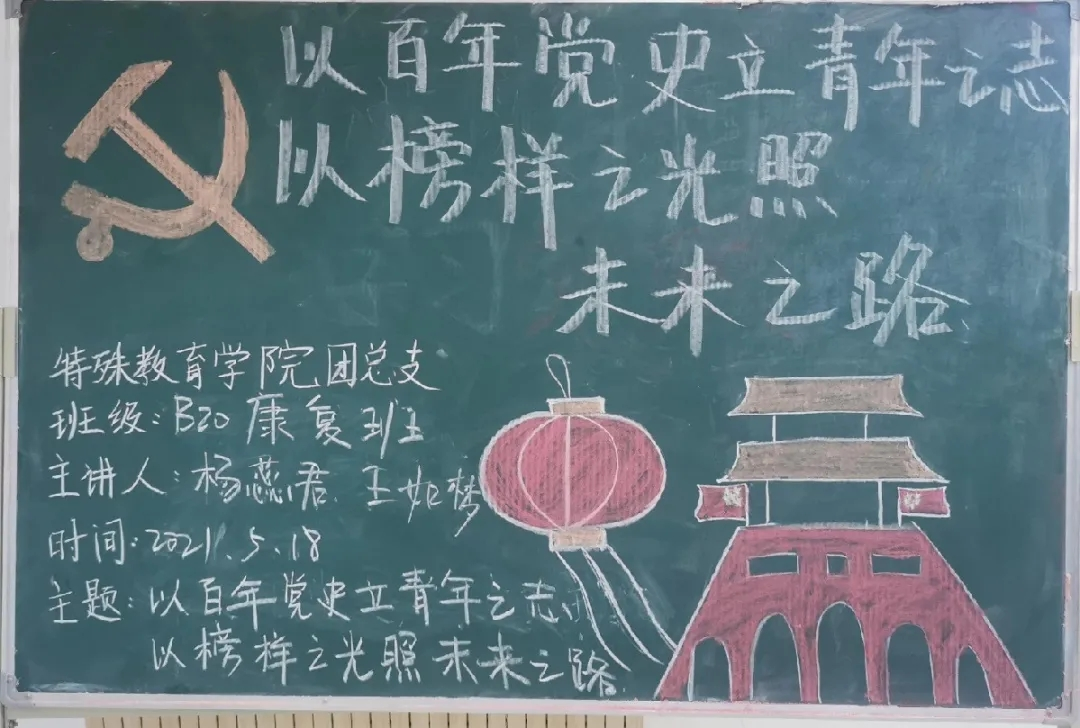 以百年党史立青年之志
以榜样之光照
未来之路
特殊教育学院团总支
班级:B20康复班
主讲人:杨蕊君 王妃梦
时间:2021.5.18
主题:以百年党史立青年之志
以榜样之光照未来之路